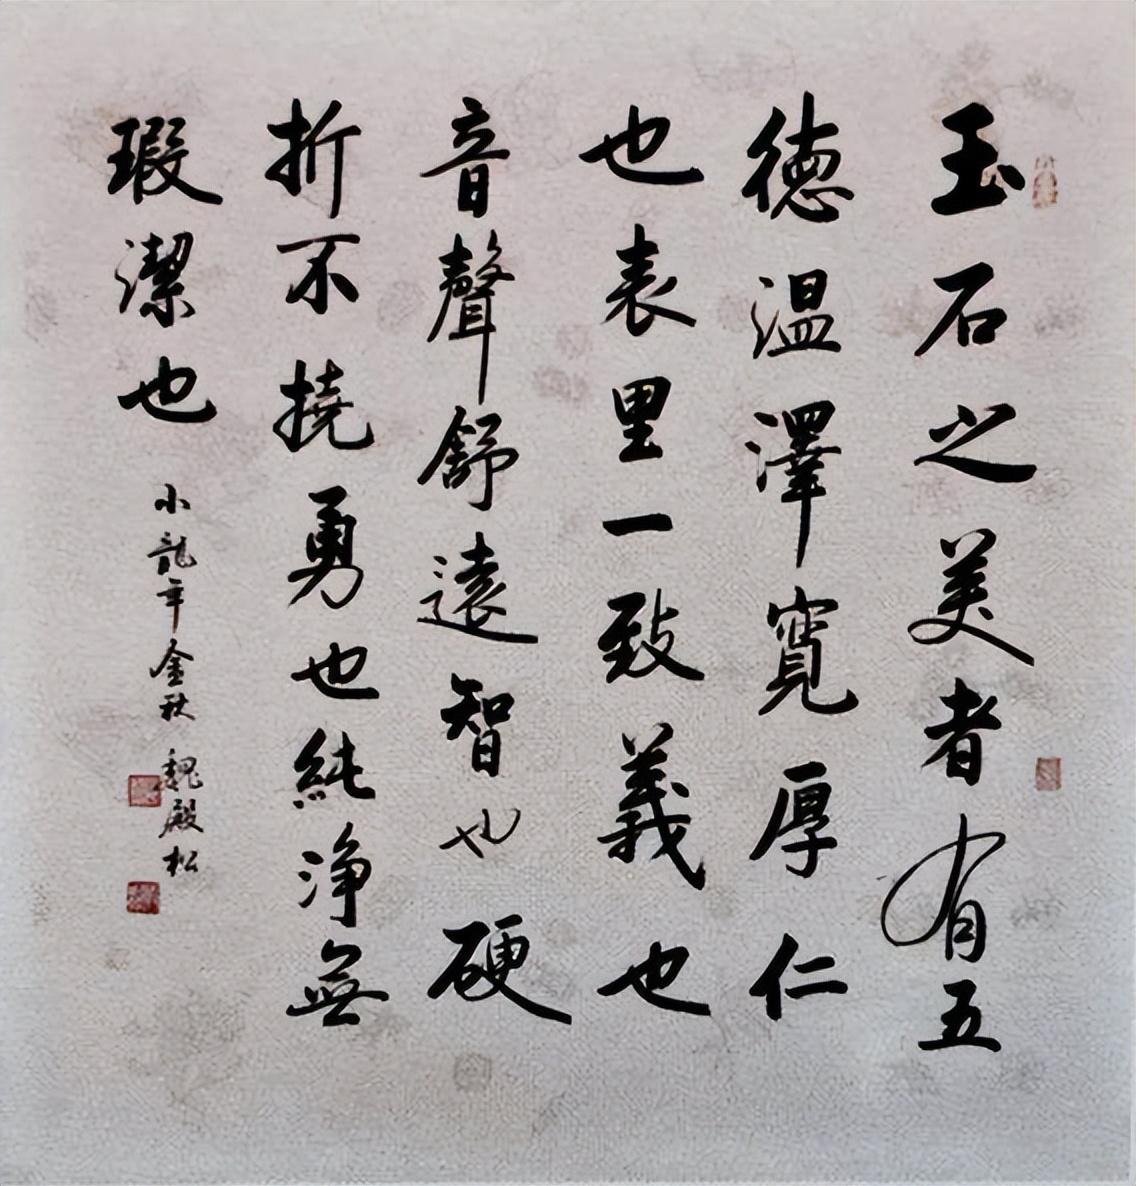 玉石之美者有五
德温澤寛厚仁
也表里一致義也
音聲舒遠智也硬
折不撓勇也純淨無
瑕潔也
小龍年金秋 魏殿松